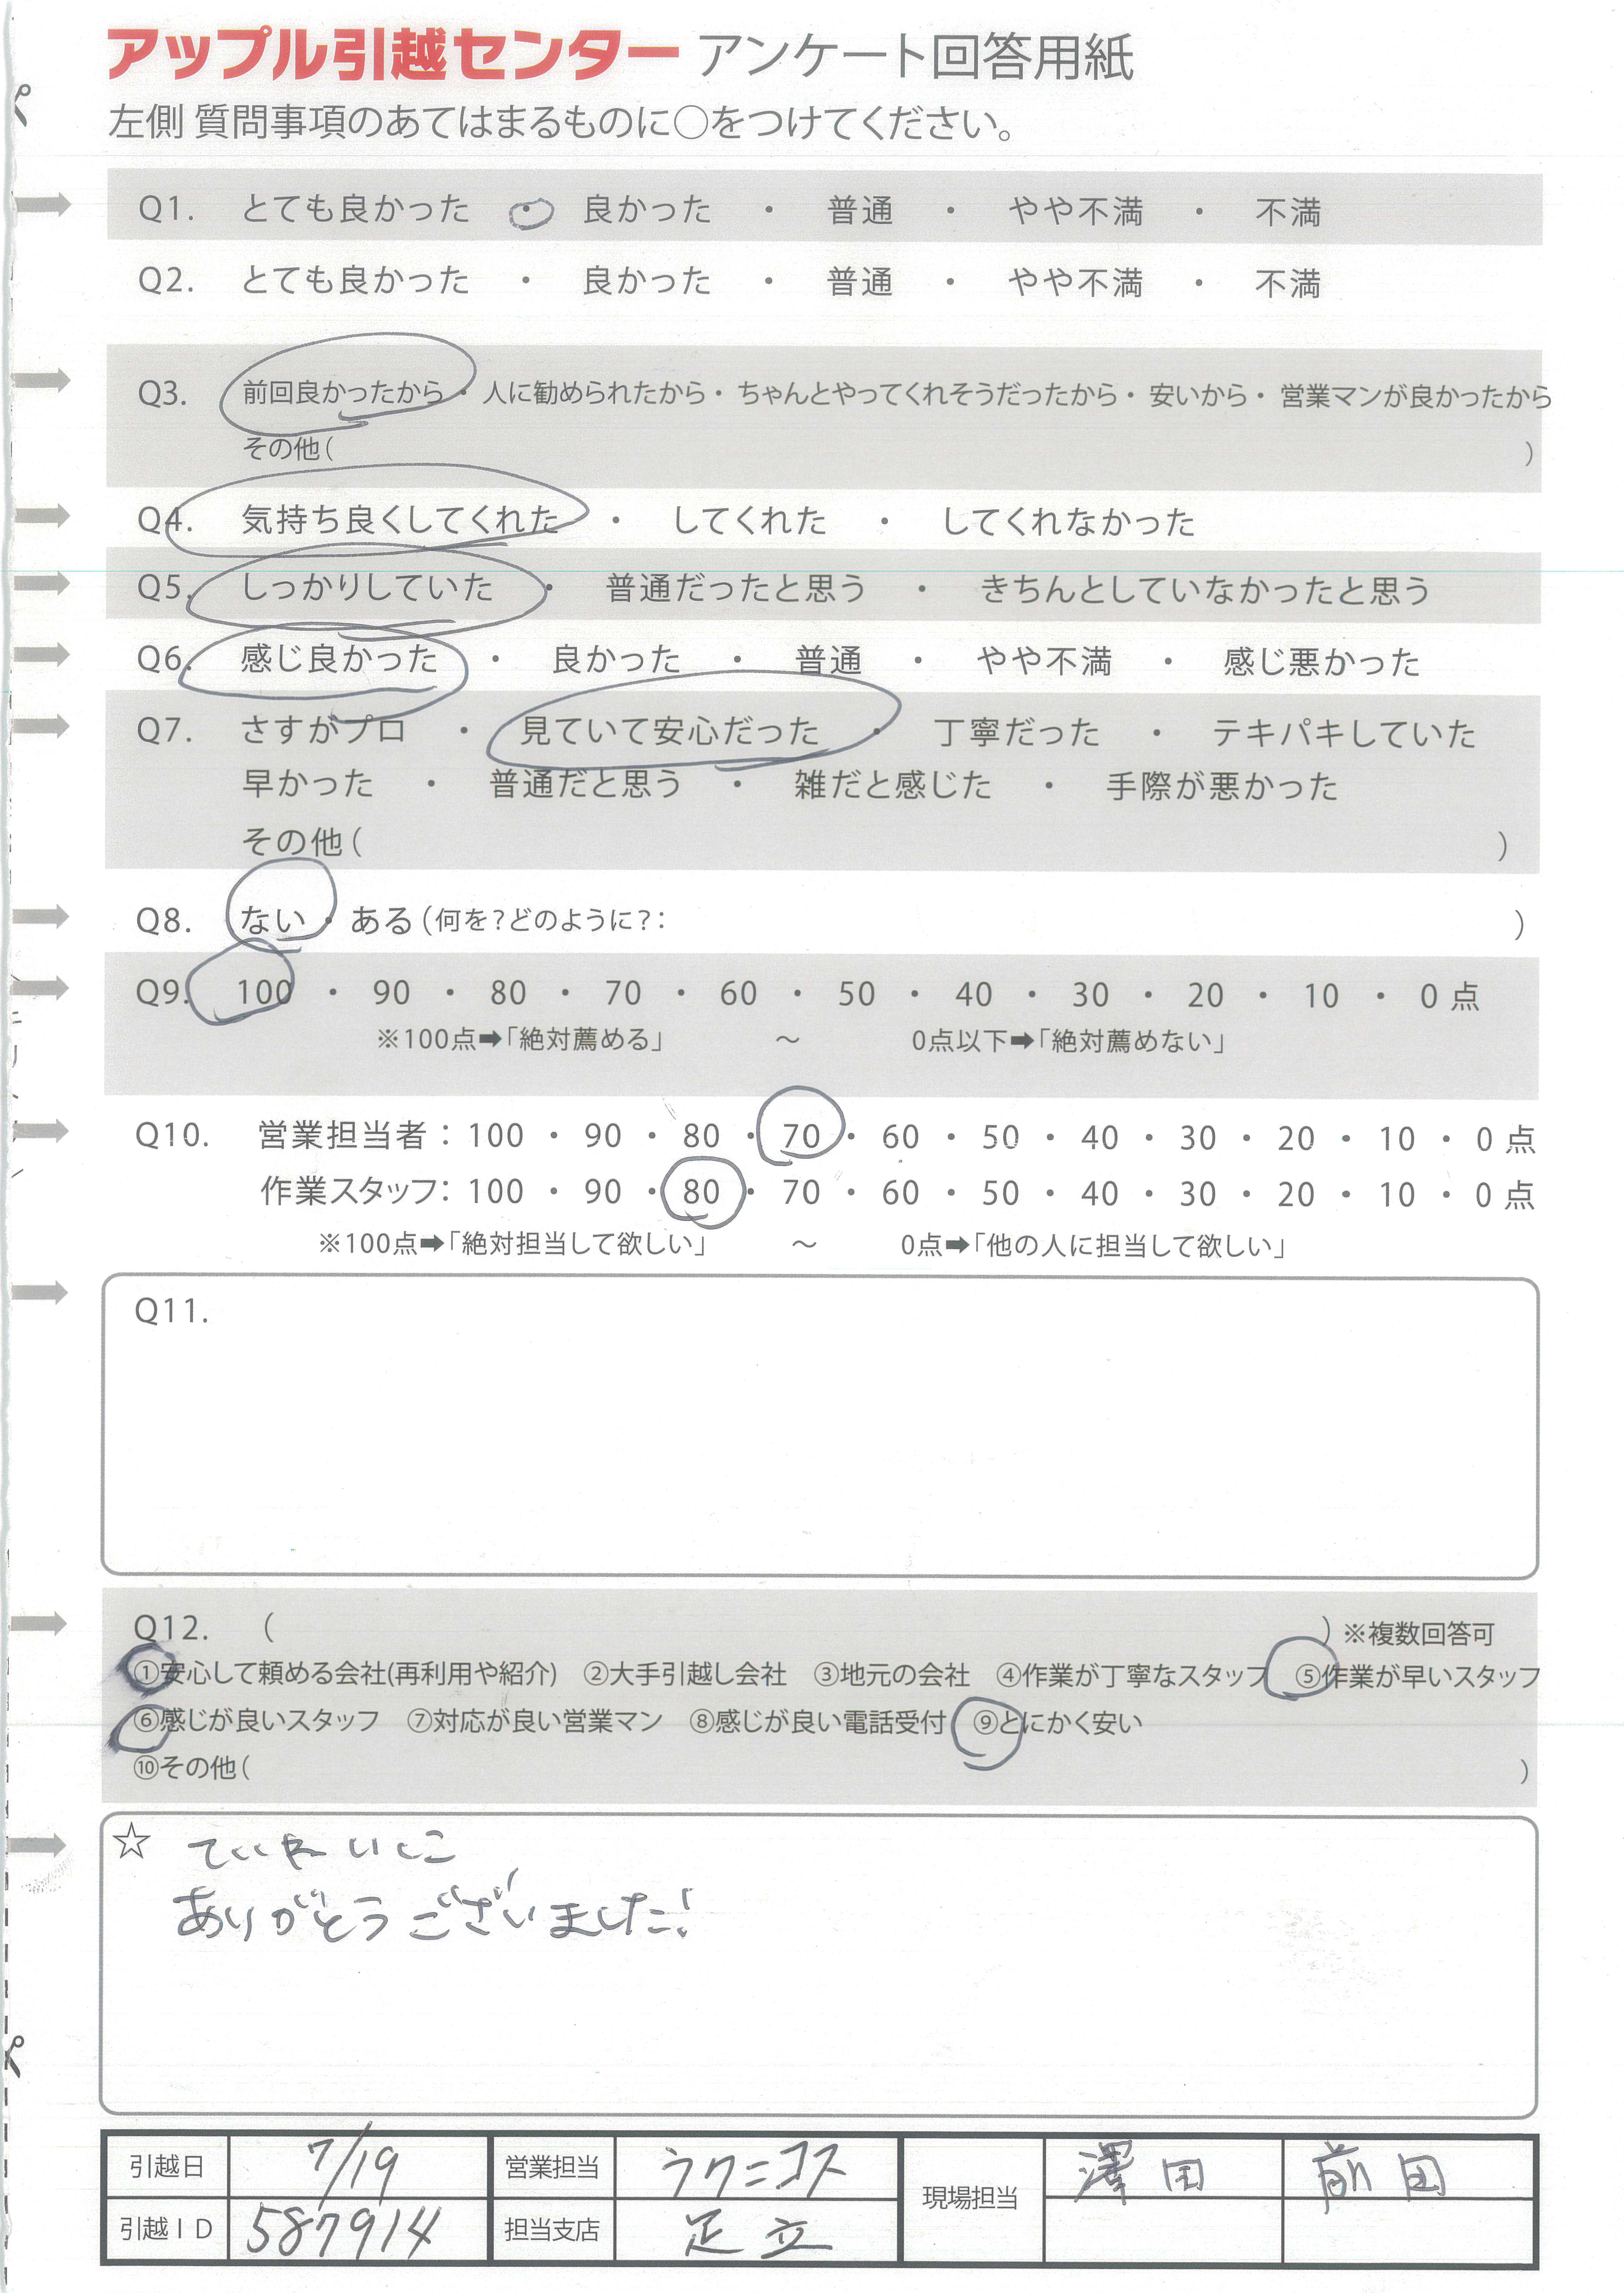 アップル引越センター アンケート回答用紙
左側 質問事項のあてはまるものに○をつけてください。
Q1. とても良かった ・ 良かった ・ 普通 ・ やや不満 ・ 不満
Q2. とても良かった ・ 良かった ・ 普通 ・ やや不満 ・ 不満
Q3. 前回良かったから・人に勧められたから・ちゃんとやってくれそうだったから・安いから・営業マンが良かったから
その他( )
Q4. 気持ち良くしてくれた ・ してくれた ・ してくれなかった
Q5. しっかりしていた ・ 普通だったと思う ・ きちんとしていなかったと思う
Q6. 感じ良かった ・ 良かった ・ 普通 ・ やや不満 ・ 感じ悪かった
Q7. さすがプロ ・ 見ていて安心だった ・ 丁寧だった ・ テキパキしていた
早かった ・ 普通だと思う ・ 雑だと感じた ・ 手際が悪かった
その他( )
Q8. ない・ある(何を?どのように?: )
Q9. 100 ・ 90 ・ 80 ・ 70 ・ 60 ・ 50 ・ 40 ・ 30 ・ 20 ・ 10 ・ 0 点
※100点➡「絶対薦める」 ～ 0点以下➡「絶対薦めない」
Q10. 営業担当者：100 ・ 90 ・ 80 ・ 70 ・ 60 ・ 50 ・ 40 ・ 30 ・ 20 ・ 10 ・ 0 点
作業スタッフ：100 ・ 90 ・ 80 ・ 70 ・ 60 ・ 50 ・ 40 ・ 30 ・ 20 ・ 10 ・ 0 点
※100点➡「絶対担当して欲しい」 ～ 0点➡「他の人に担当して欲しい」
Q11.
Q12. ( ) ※複数回答可
①安心して頼める会社(再利用や紹介) ②大手引越し会社 ③地元の会社 ④作業が丁寧なスタッフ ⑤作業が早いスタッフ
⑥感じが良いスタッフ ⑦対応が良い営業マン ⑧感じが良い電話受付 ⑨とにかく安い
⑩その他( )
☆ ていねいに
ありがとうございました!
引越日 7/19 営業担当 ラクニコス 現場担当 澤田 前田
引越ID 587914 担当支店 足立